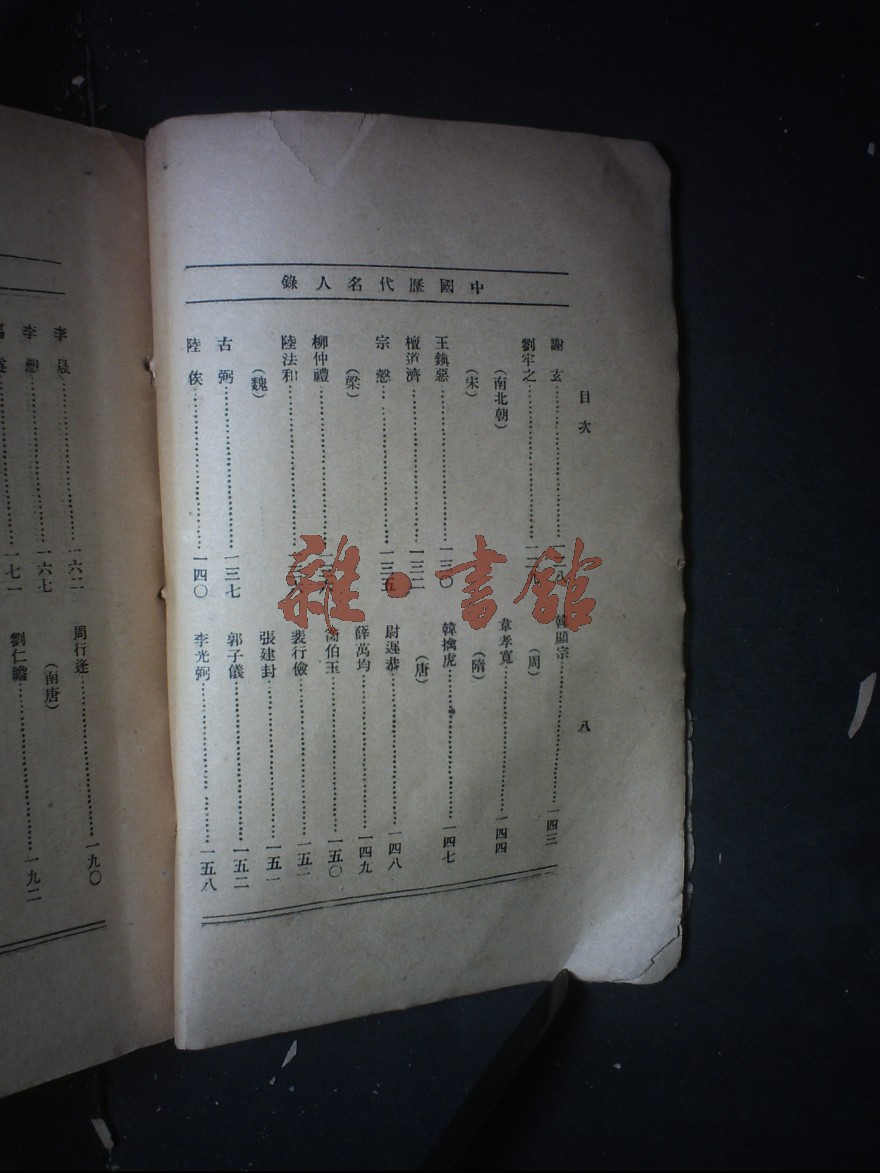 中國歷代名人錄
目次 八
謝玄………一二八
劉牢之………一二九
（南北朝）
（宋）
王鎮惡………一三〇
檀道濟………一三二
宗慤………一三五
（梁）
柳仲禮………一三六
陸法和………
（魏）
古弼………一三七
陸俟………一四〇
韓顯宗………一四三
（周）
韋孝寬………一四四
（隋）
韓擒虎………一四七
（唐）
尉遲恭………一四八
薛萬均………一四九
伯玉………一五〇
裴行儉………一五一
張建封………一五一
郭子儀………一五二
李光弼………一五八
李晟………一六二
李愬………一六七
………一七一
周行逢………一九〇
（南唐）
劉仁瞻………一九二
雜·書館